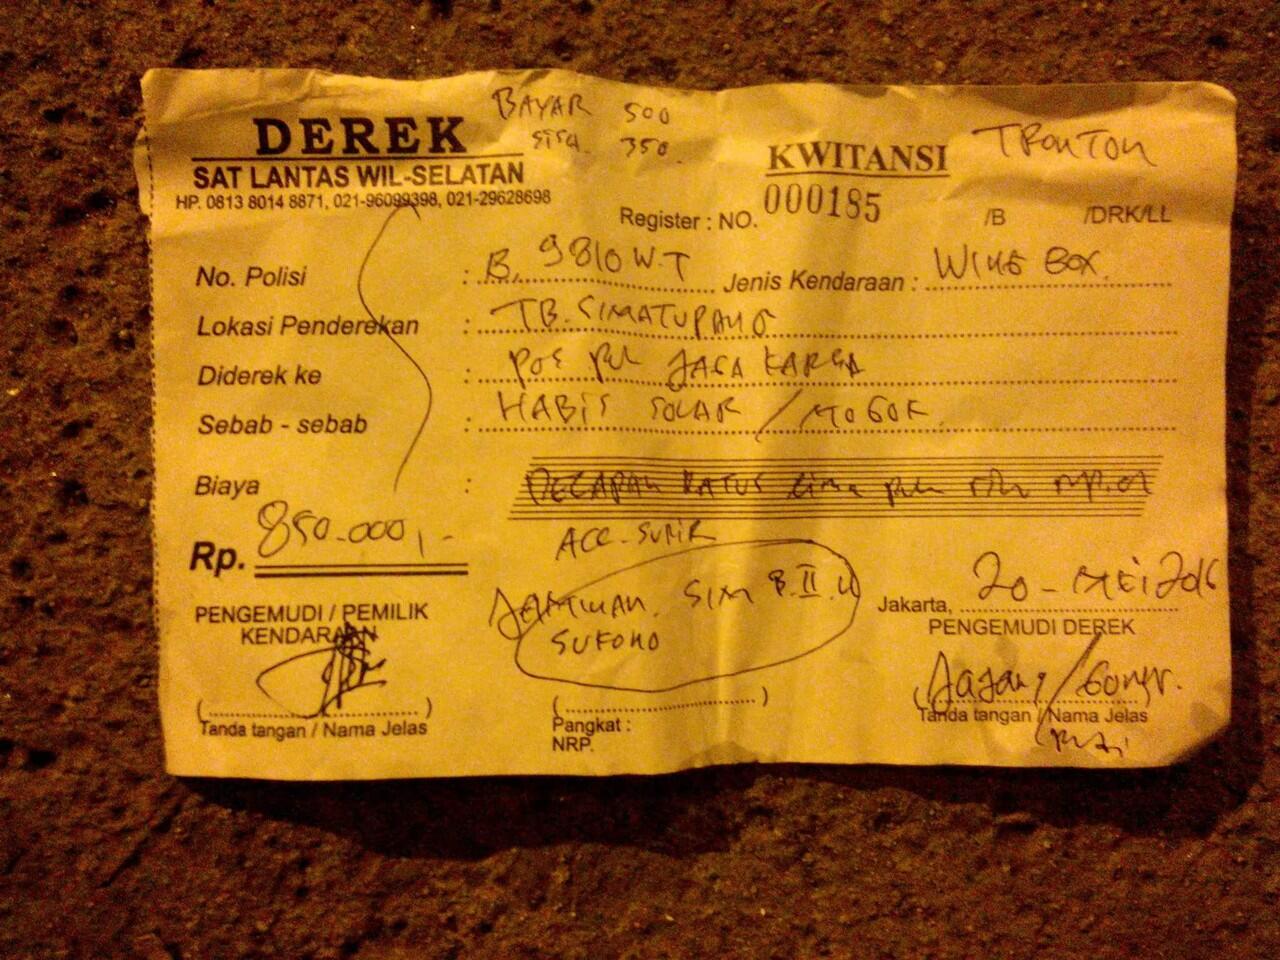 BAYAR 500
sisa. 350.
DEREK
SAT LANTAS WIL-SELATAN
HP. 0813 8014 8871, 021-96099398, 021-29628698
KWITANSI TRONTON
Register : NO. 000185 /B /DRK/LL
No. Polisi : B. 9810 W.T Jenis Kendaraan : WING BOX.
Lokasi Penderekan : TB. SIMATUPANG
Diderek ke : POS JAGA KARSA
Sebab - sebab : HABIS SOLAR / MOGOK
Biaya : DELAPAN RATUS Lima
Rp. 850.000,-
ACC. SUPIR
SIM B.II.U
SUKONO
Jakarta, 20 - MEI 2016
PENGEMUDI / PEMILIK
KENDARAAN
PENGEMUDI DEREK
(........................)
Tanda tangan / Nama Jelas
(........................)
Pangkat :
NRP.
Tanda tangan / Nama Jelas